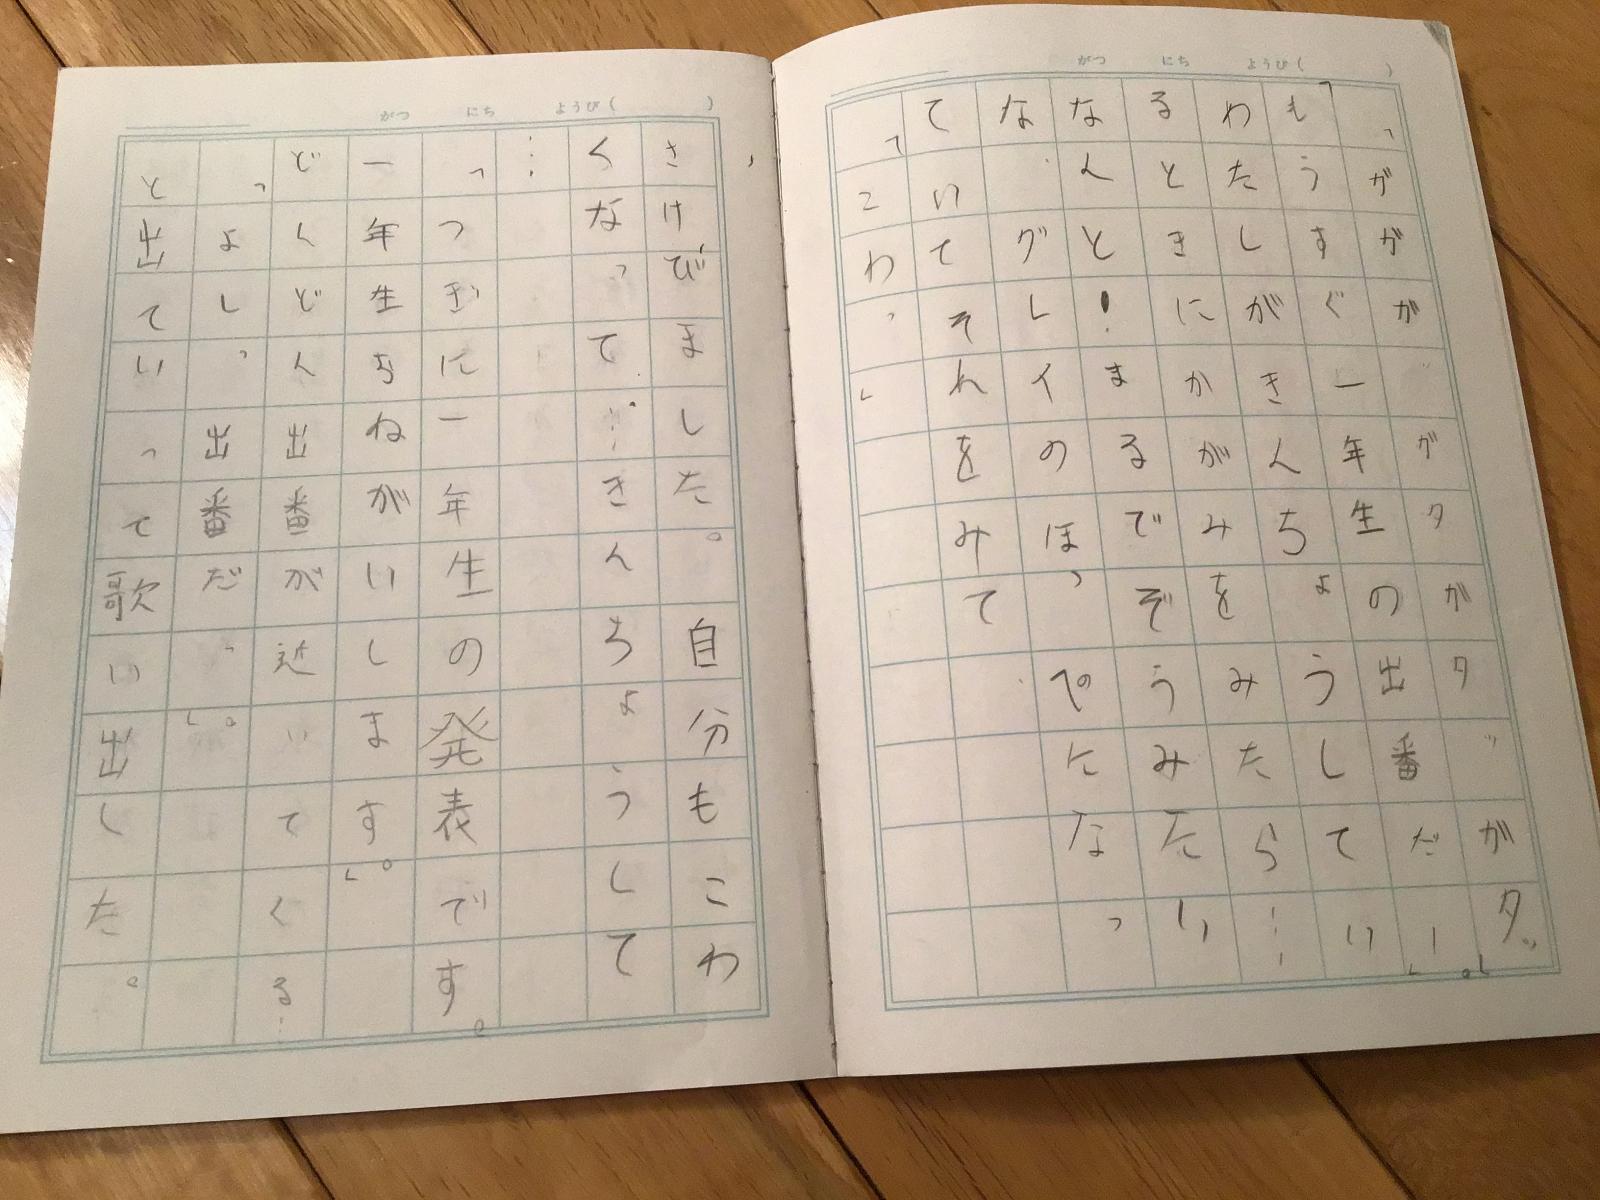 がつ にち ようび( )
「ガガガッガタガタッガタッ。」
「もうすぐ一年生の出番だー。」
わたしがきんちょうしてい
るときにかがみをみたら…
なんと!まるでぞうみたい
な、グレイのほっぺになっ
ていてそれをみて
「こわっ」
がつ にち ようび( )
さけびました。自分もこわ
くなって…きんちょうして
…
「つぎに一年生の発表です。
一年生おねがいします。」
どんどん出番が近いてくる…
「よしっ出番だっ。」
と出ていって歌い出した。